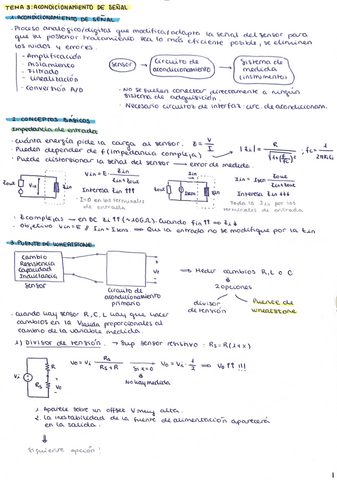 TEMA 3: ACONDICIONAMIENTO DE SEÑAL
1. ACONDICIONAMIENTO DE SEÑAL
· Proceso analógico/digitales que modifica/adapta la señal del sensor para
que su posterior tratamiento sea lo más eficiente posible, se eliminen
los ruidos y errores.
- Amplificación
- Aislamiento
- Filtrado
- Linealización
- Conversión A/D
sensor
Circuito de acondicionamiento
Sistema de medida (instrumento)
- No se suelen conectar directamente a ningún
sistema de adquisición.
· Necesario circuitos de interfaz: circ. de acondicionam.
2. CONCEPTOS BÁSICOS
Impedancia de entrada
· Cuánta energía pide la carga al sensor. Z = V/I
· Pueden depender de f (impedancia compleja)
· Puede distorsionar la señal del sensor → error de medida.
Interesa Zin ↑↑↑
I=0 en los terminales
de entrada
Interesa Zin ↓↓↓
Toda la I in por los
terminales de entrada
· Objetivo Vin = E // Iin = Isen ⇒ Que la entrada no se modifique por la Zin
3. PUENTE DE WHEATSTONE
cambio
Resistencia
capacidad
Inductancia
sensor
Circuito de
acondicionamiento
primario
Vo
⇒ Medir cambios R, L o C
2 opciones
divisor
de tensión
Puente de
wheatstone
· Cuando hay sensor R, C, L hay que hacer
cambios en la Vsalida proporcionales al
cambio de la variable medida.
1) Divisor de tensión. → Sup sensor resistivo: Rs = R(1+x)
Vi
R
Rs
Vo
Si x=0
No hay medida
1. Aparece sobre un offset V muy alta.
2. la inestabilidad de la fuente de alimentación aparecerá
en la salida.
Siguiente opción!
1